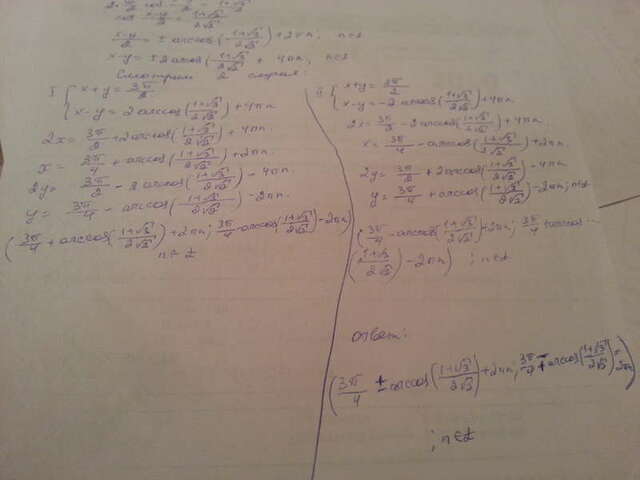 cos (x-y)/2 = (1+√3)/(2√2)
(x-y)/2 = ± arccos((1+√3)/(2√2)) + 2πn, n∈z
x-y = ± 2 arccos((1+√3)/(2√2)) + 4πn, n∈z
Смотрим 2 случая:
I { x+y = 3π/2
x-y = 2 arccos((1+√3)/(2√2)) + 4πn
2x = 3π/2 + 2 arccos((1+√3)/(2√2)) + 4πn
x = 3π/4 + arccos((1+√3)/(2√2)) + 2πn
2y = 3π/2 - 2 arccos((1+√3)/(2√2)) - 4πn
y = 3π/4 - arccos((1+√3)/(2√2)) - 2πn
(3π/4 + arccos((1+√3)/(2√2)) + 2πn; 3π/4 - arccos((1+√3)/(2√2)) - 2πn)
n∈Z
II { x+y = 3π/2
x-y = -2 arccos((1+√3)/(2√2)) + 4πn
2x = 3π/2 - 2 arccos((1+√3)/(2√2)) + 4πn
x = 3π/4 - arccos((1+√3)/(2√2)) + 2πn
2y = 3π/2 + 2 arccos((1+√3)/(2√2)) - 4πn
y = 3π/4 + arccos((1+√3)/(2√2)) - 2πn; n∈Z
(3π/4 - arccos((1+√3)/(2√2)) + 2πn; 3π/4 + arccos...
((1+√3)/(2√2)) - 2πn) ; n∈Z
ответ:
(3π/4 ± arccos((1+√3)/(2√2)) + 2πn; 3π/4 ∓ arccos((1+√3)/(2√2)) - 2πn)
; n∈Z